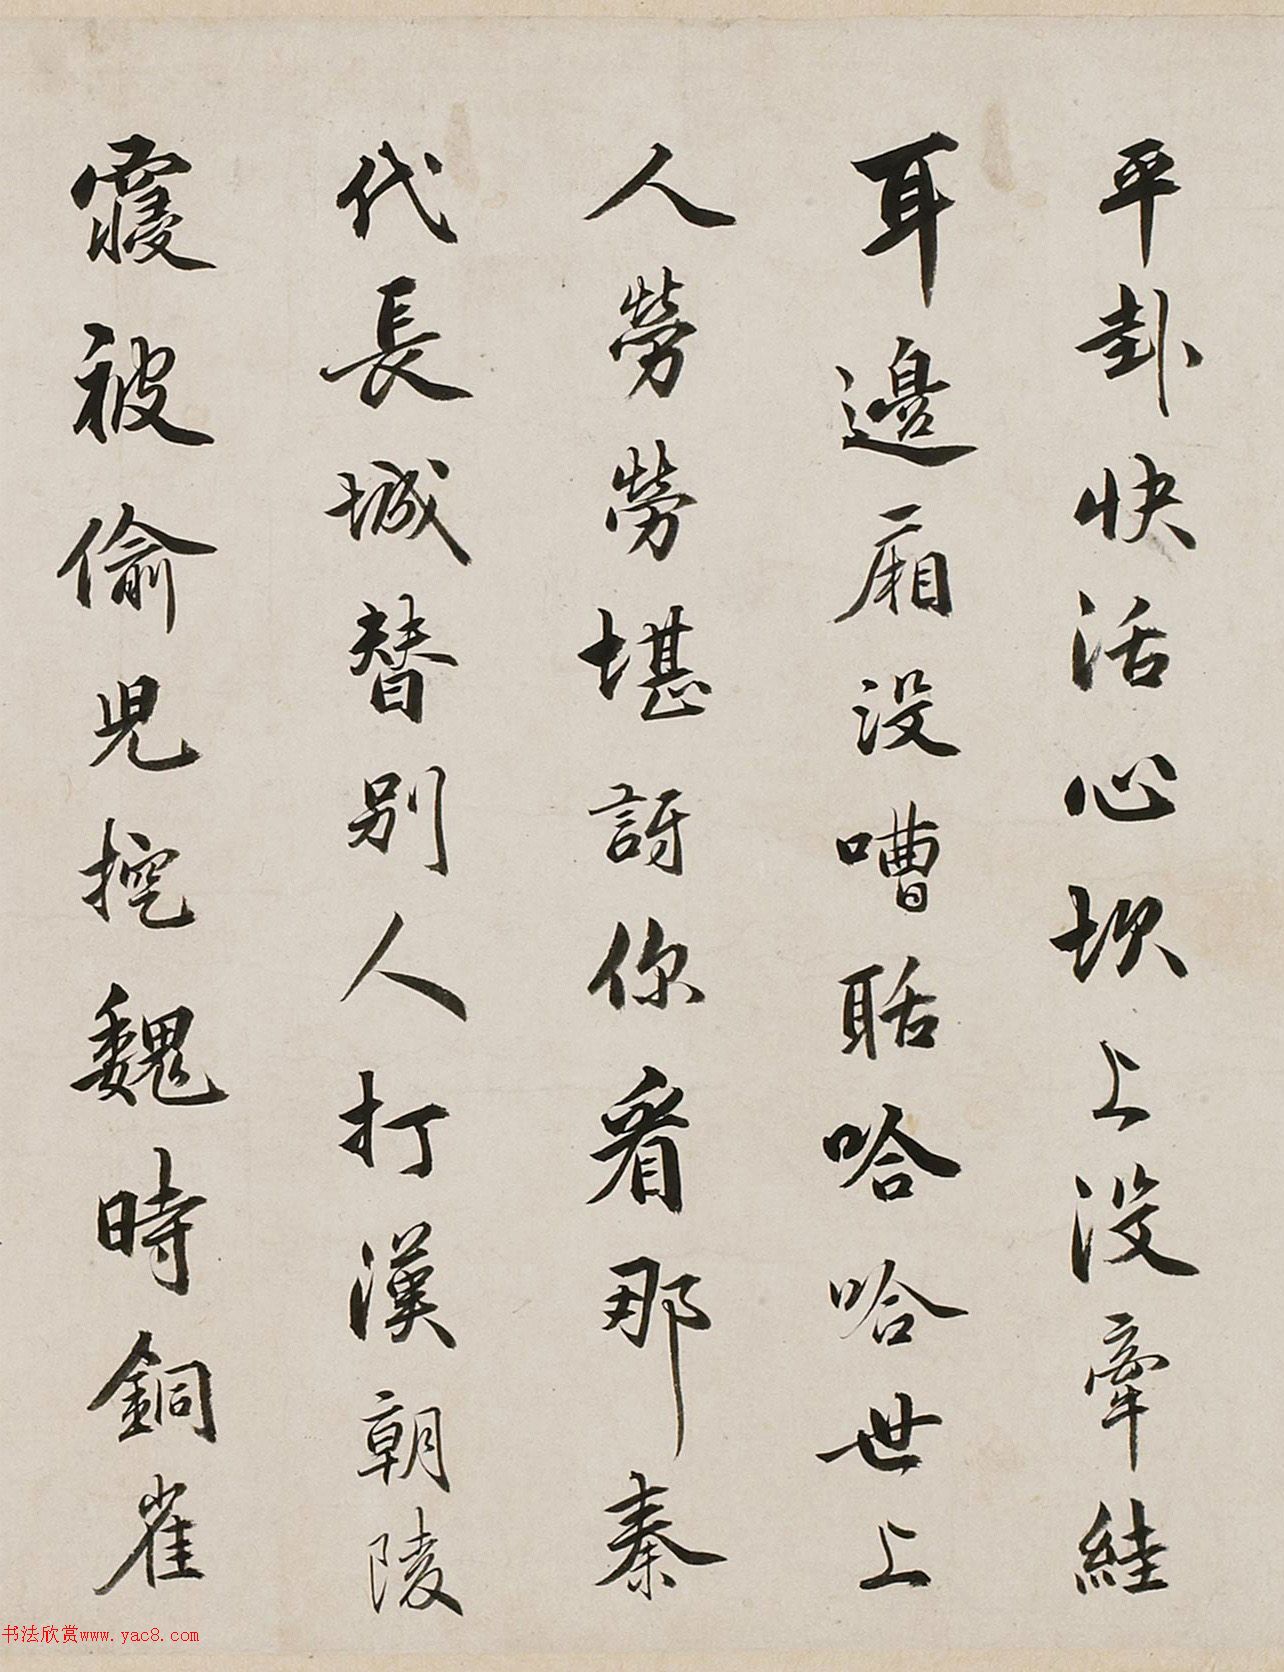 平卦快活心坎上沒牽絓
耳邊廂没嘈聒哈哈世上
人勞勞堪訝你看那秦
代長城替別人打漢朝陵
寢被偷兒挖魏時銅雀
书法欣赏www.yac8.com